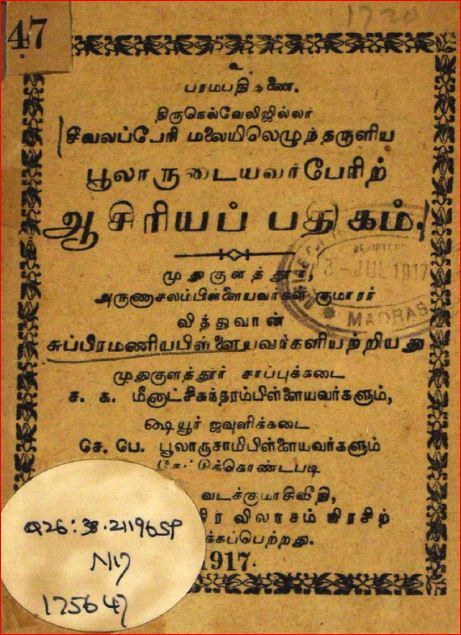 47
1720
உ
பரமபதி துணை.
திருநெல்வேலிஜில்லா
சீவலப்பேரி மலையிலெழுந்தருளிய
பூலாருடையவர்பேரிற்
ஆசிரியப் பதிகம்.
முதுகுளத்தூர்
அருணாசலம்பிள்ளையவர்கள் குமாரர்
வித்துவான்
சுப்பிரமணியபிள்ளையவர்களியற்றியது
முதுகுளத்தூர் சாப்புக்கடை
ச. க. மீனாட்சிசுந்தரம்பிள்ளையவர்களும்,
ஷையூர் ஜவுளிக்கடை
செ. பெ. பூலாருசாமிபிள்ளையவர்களும்
கேட்டுக்கொண்டபடி
வடக்குமாசிவீதி,
விலாசம் பிரசிற்
கப்பெற்றது.
1917.
JUL 1917
MADRAS
Q26:38.21196SP
N17
125647